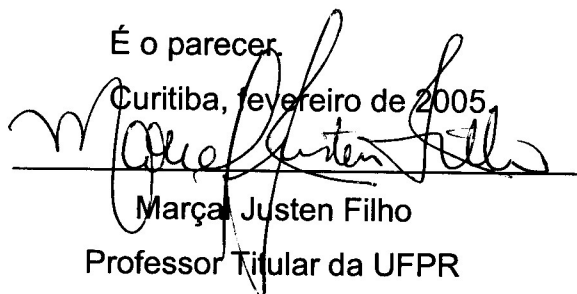 É o parecer.
Curitiba, fevereiro de 2005.
Marçal Justen Filho
Marçal Justen Filho
Professor Titular da UFPR